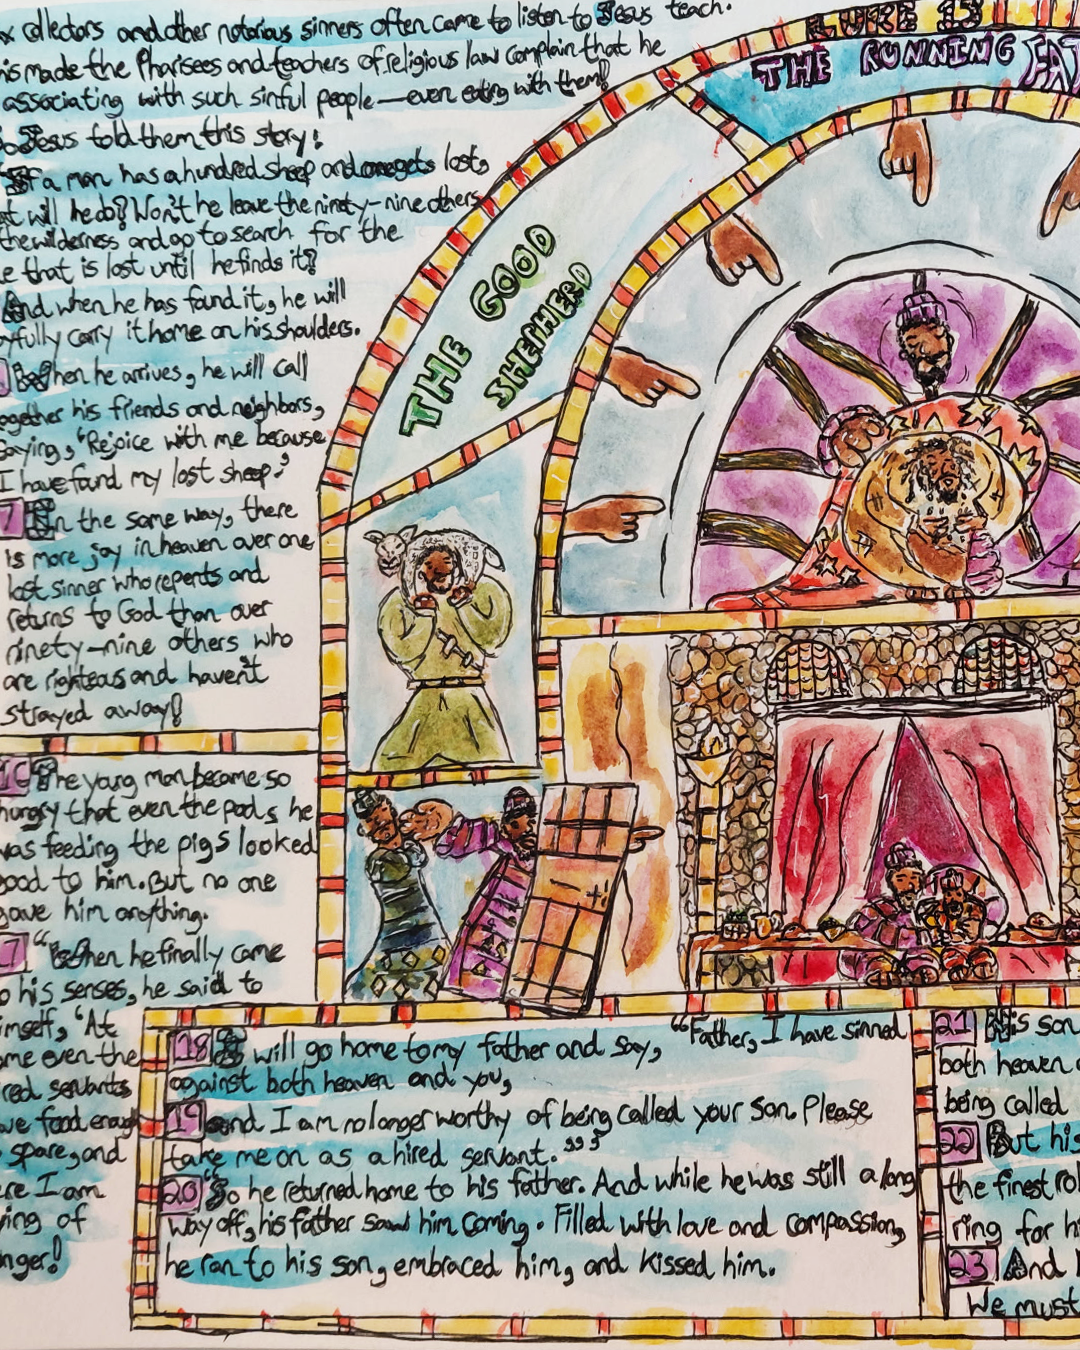 x collectors and other notorious sinners often came to listen to Jesus teach.
his made the Pharisees and teachers of religious law complain that he
associating with such sinful people—even eating with them!
So Jesus told them this story:
"If a man has a hundred sheep and one gets lost,
at will he do? Won't he leave the ninety-nine others
the wilderness and go to search for the
e that is lost until he finds it?
And when he has found it, he will
yfully carry it home on his shoulders.
When he arrives, he will call
ogether his friends and neighbors,
saying, 'Rejoice with me because
I have found my lost sheep.'
7 In the same way, there
is more joy in heaven over one
lost sinner who repents and
returns to God than over
ninety-nine others who
are righteous and haven't
strayed away!
LUKE 15
THE RUNNING FAT
THE GOOD
SHEPHERD
16 The young man became so
hungry that even the pods he
was feeding the pigs looked
good to him. But no one
gave him anything.
17 "When he finally came
o his senses, he said to
imself, 'At
ome even the
ired servants
ave food enough
spare, and
ere I am
ying of
nger!
18 I will go home to my father and say, "Father, I have sinned
against both heaven and you,
19 and I am no longer worthy of being called your son. Please
take me on as a hired servant."'
20 "So he returned home to his father. And while he was still a long
way off, his father saw him coming. Filled with love and compassion,
he ran to his son, embraced him, and kissed him.
21 His son
both heaven a
being called
22 But his
the finest rob
ring for hi
23 And
We must